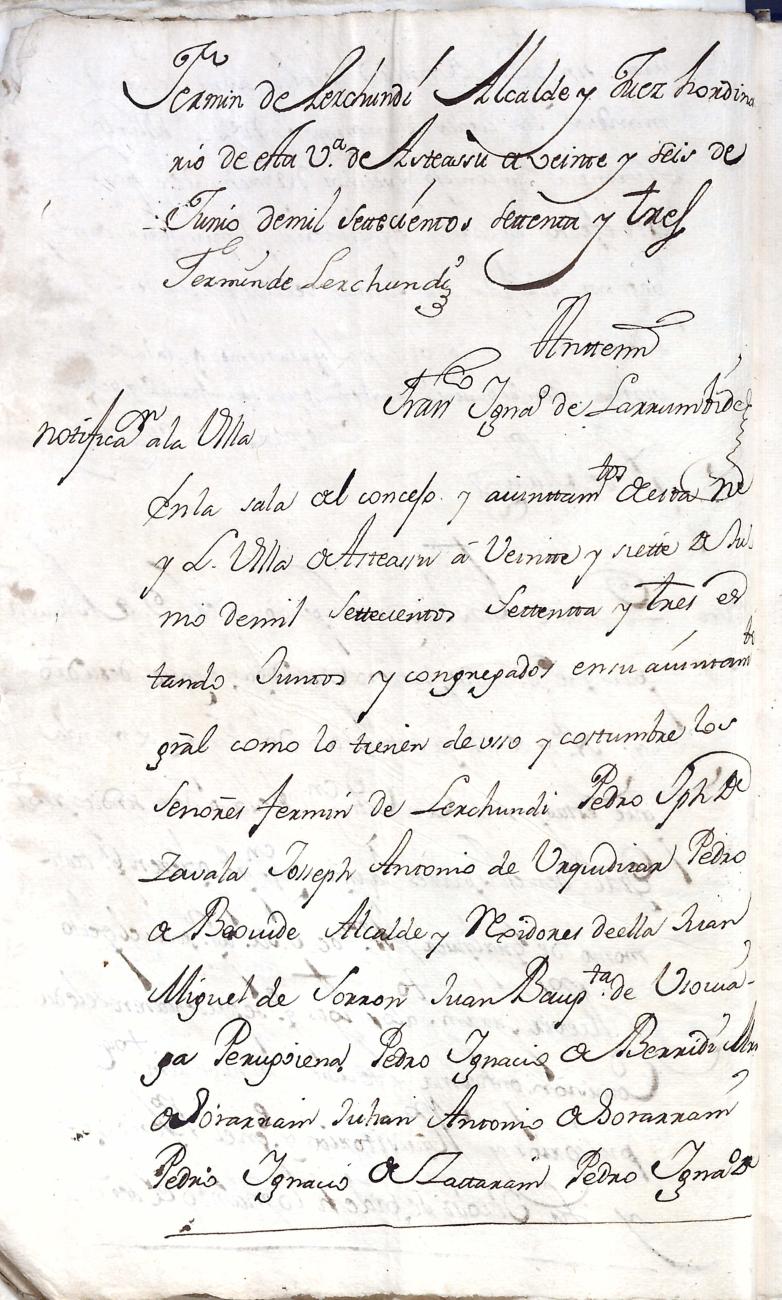 Fermin de Lerchundi Alcalde y Juez hordina
rio de esta V.ª de Asteassu a veinte y seis de
Junio demil settecientos settenta y tres
Fermin de Lerchundi
Anttemi
Fran^co Ygna^o de Larrumbide
notifica^on ala Villa
En la sala del concejo y aiunttam^tos de esta N
y L. Villa de Asteassu á Veintte y siette de Ju
nio demil Settecientos Settentta y tres es
tando Juntos y congregados en su aiuntam^to
gñal como lo tienen de usso y costumbre los
Señores fermin de Lerchundi Pedro Jph de
Zavala Joseph Antonio de Urquidizar Pedro
de Alcalde y Rexidores de ella Juan
Miguel de Sorron Juan Baup^ta de
ga Pedro Ygnacio de Berridi
de Sorarrain Julian Antonio de Sorarrain
Pedro Ygnacio de Zattarain Pedro Ygna^o de